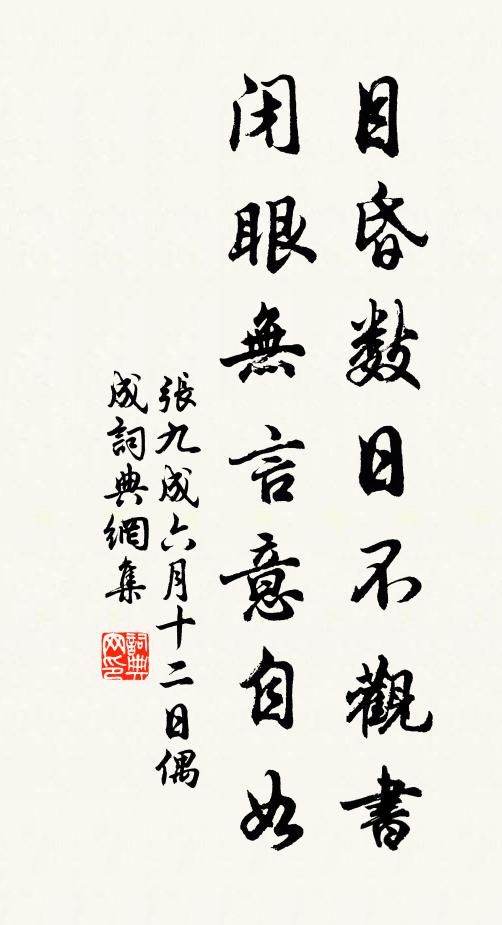 目昏数日不觀書
闭眼無言意自如
張九成六月十二日偶
成詞典網集
詞典
网印